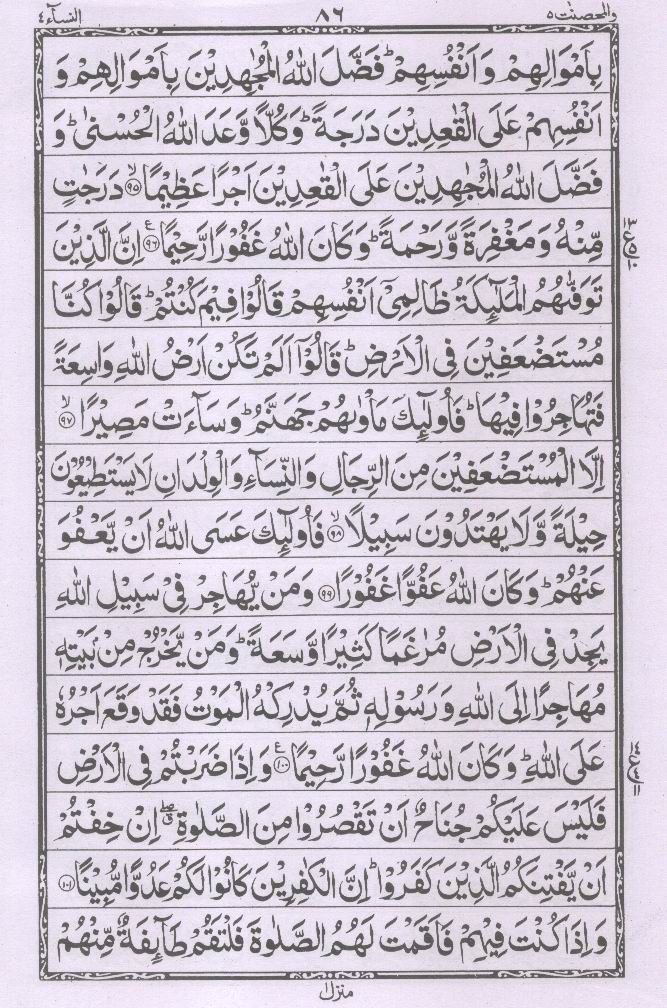 والمحصنت ٥ ٨٦ النسآء ٤
بِاَمْوَالِهِمْ وَاَنْفُسِهِمْ ؕ فَضَّلَ اللّٰهُ الْمُجٰهِدِيْنَ بِاَمْوَالِهِمْ وَ
اَنْفُسِهِمْ عَلَى الْقٰعِدِيْنَ دَرَجَةً ؕ وَكُلًّا وَّعَدَ اللّٰهُ الْحُسْنٰى ؕ وَ
فَضَّلَ اللّٰهُ الْمُجٰهِدِيْنَ عَلَى الْقٰعِدِيْنَ اَجْرًا عَظِيْمًا ۙ ٩٥ دَرَجٰتٍ
مِّنْهُ وَمَغْفِرَةً وَّرَحْمَةً ؕ وَكَانَ اللّٰهُ غَفُوْرًا رَّحِيْمًا ٩٦ ع اِنَّ الَّذِيْنَ
تَوَفّٰىهُمُ الْمَلٰٓئِكَةُ ظَالِمِيْۤ اَنْفُسِهِمْ قَالُوْا فِيْمَ كُنْتُمْ ؕ قَالُوْا كُنَّا
مُسْتَضْعَفِيْنَ فِى الْاَرْضِ ؕ قَالُوْۤا اَلَمْ تَكُنْ اَرْضُ اللّٰهِ وَاسِعَةً
فَتُهَاجِرُوْا فِيْهَا ؕ فَاُولٰٓئِكَ مَاْوٰىهُمْ جَهَنَّمُ ؕ وَسَآءَتْ مَصِيْرًا ۙ ٩٧
اِلَّا الْمُسْتَضْعَفِيْنَ مِنَ الرِّجَالِ وَالنِّسَآءِ وَالْوِلْدَانِ لَا يَسْتَطِيْعُوْنَ
حِيْلَةً وَّلَا يَهْتَدُوْنَ سَبِيْلًا ۙ ٩٨ فَاُولٰٓئِكَ عَسَى اللّٰهُ اَنْ يَّعْفُوَ
عَنْهُمْ ؕ وَكَانَ اللّٰهُ عَفُوًّا غَفُوْرًا ٩٩ وَمَنْ يُّهَاجِرْ فِيْ سَبِيْلِ اللّٰهِ
يَجِدْ فِى الْاَرْضِ مُرٰغَمًا كَثِيْرًا وَّسَعَةً ؕ وَمَنْ يَّخْرُجْ مِنْۢ بَيْتِهٖ
مُهَاجِرًا اِلَى اللّٰهِ وَرَسُوْلِهٖ ثُمَّ يُدْرِكْهُ الْمَوْتُ فَقَدْ وَقَعَ اَجْرُهٗ
عَلَى اللّٰهِ ؕ وَكَانَ اللّٰهُ غَفُوْرًا رَّحِيْمًا ١٠٠ ع وَاِذَا ضَرَبْتُمْ فِى الْاَرْضِ
فَلَيْسَ عَلَيْكُمْ جُنَاحٌ اَنْ تَقْصُرُوْا مِنَ الصَّلٰوةِ ۖ اِنْ خِفْتُمْ
اَنْ يَّفْتِنَكُمُ الَّذِيْنَ كَفَرُوْا ؕ اِنَّ الْكٰفِرِيْنَ كَانُوْا لَكُمْ عَدُوًّا مُّبِيْنًا ١٠١
وَاِذَا كُنْتَ فِيْهِمْ فَاَقَمْتَ لَهُمُ الصَّلٰوةَ فَلْتَقُمْ طَآئِفَةٌ مِّنْهُمْ
منزل ١